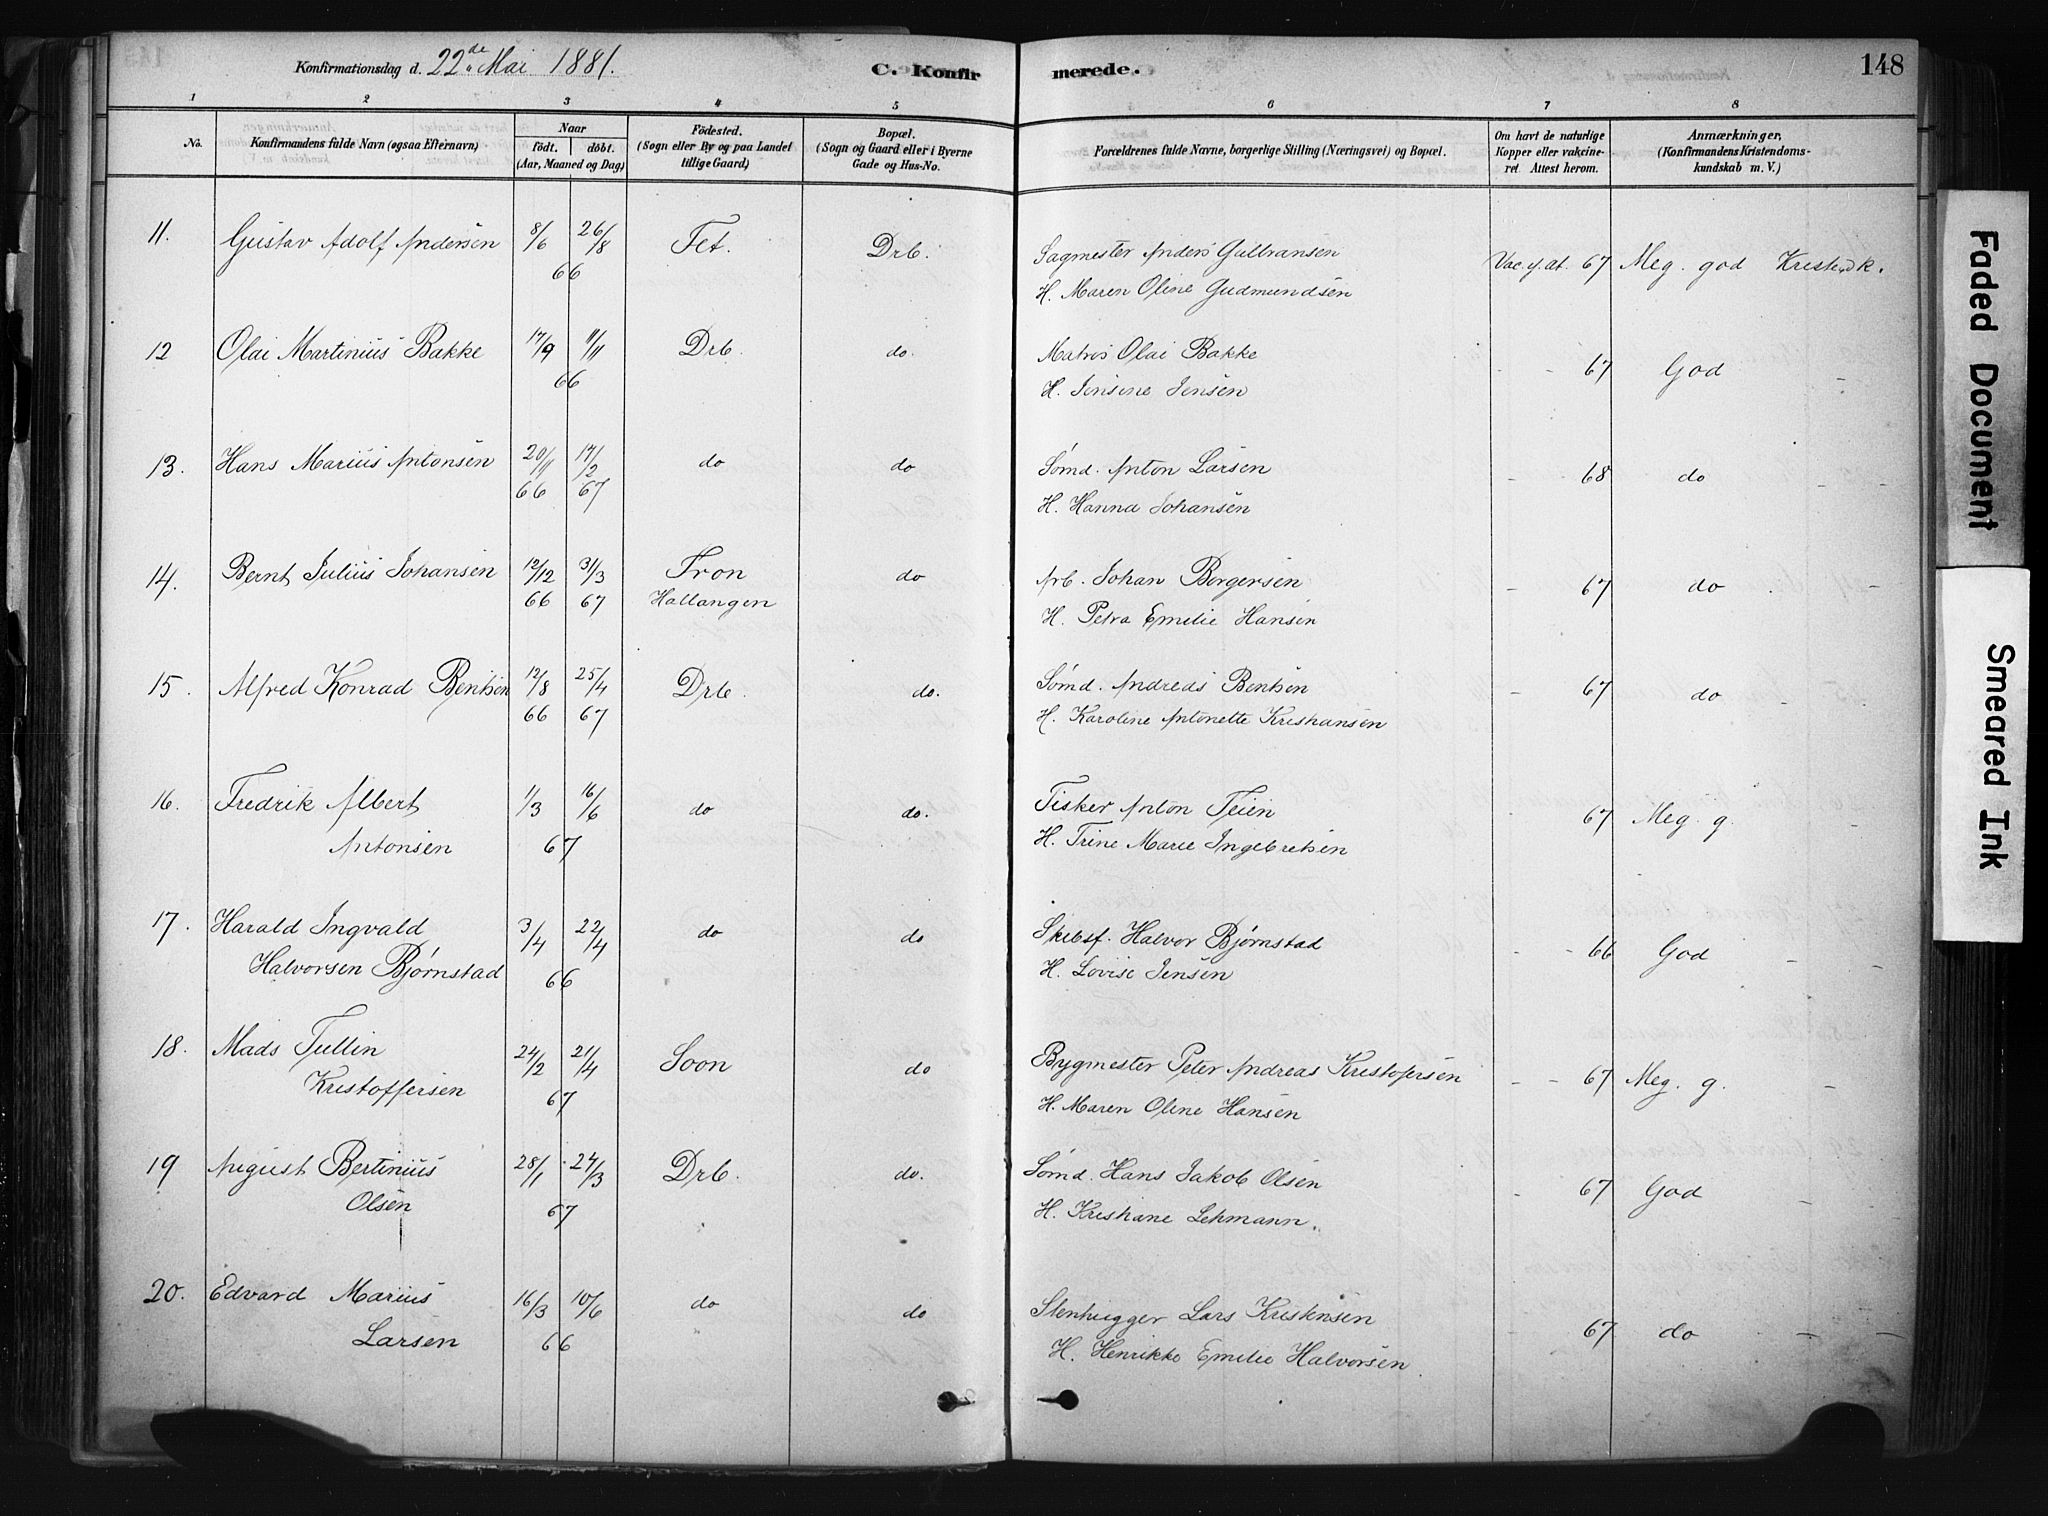 Konfirmationsdag d. 22de Mai 1881. C. Konfirmerede. 148
1 2 3 4 5 6 7 8
No. Konfirmandens fulde Navn (ogsaa Efternavn) Naar födt. döbt. (Aar, Maaned og Dag) Födested. (Sogn eller By og paa Landet tillige Gaard) Bopæl. (Sogn og Gaard eller i Byerne Gade og Hus-No. Forældrenes fulde Navne, borgerlige Stilling (Næringsvei) og Bopæl. Om havt de naturlige Kopper eller vakcineret Attest herom. Anmærkninger, (Konfirmandens Kristendomskundskab m. V.)
11. Gustav Adolf Andersen 8/6 26/8 Fet. Drb. Sagmester Anders Gulbransen Vac. s. at. 67 Meg. god Kristdk.
66 H. Maren Oline Gudmundsen
12 Olai Martinius Bakke 17/9 11/11 Drb. do. Matros Olai Bakke - - 67 God -
66 H. Jensine Jensen
13. Hans Marius Antonsen 20/11 17/2 do do Sømd. Anton Larsen - - 68 do - -
66 67 H. Hanna Johansen
14. Bernt Julius Johansen 12/12 31/3 Fron do Arb. Johan Borgersen - 67 do . -
66 67 Hallangen H. Petra Emilie Hansen
15. Alfred Konrad Bentsen 12/8 25/4 Drb. do. Sømd. Andreas Bentsen - 67 do -
66 67 H. Karoline Antonette Kristiansen
16. Fredrik Albert 1/3 16/6 do do. Fisker Anton Teien 67 Meg. g. -
Antonsen 67 H. Trine Marie Ingebretsen
17. Harald Ingvald 3/4 22/4 do do Skibsf. Halvor Bjørnstad - - 66 God - -
Halvorsen Bjørnstad 66 H. Lovise Jensen
18. Mads Tullin 24/2 21/4 Soon do Bygmester Peter Andreas Kristofersen - - 67 Meg. g. -
Kristoffersen 67 H. Maren Oline Hansen
19 August Bertinius 28/1 24/3 Drb. do. Sømd. Hans Jakob Olsen - 67 God -
Olsen 67 H. Kristiane Lehmann.
20. Edvard Marius 16/3 10/6 do do Stenhugger Lars Kristensen - 67 do - -
Larsen 66 H. Henrikke Emilie Halvorsen
Faded Document
Smeared Ink